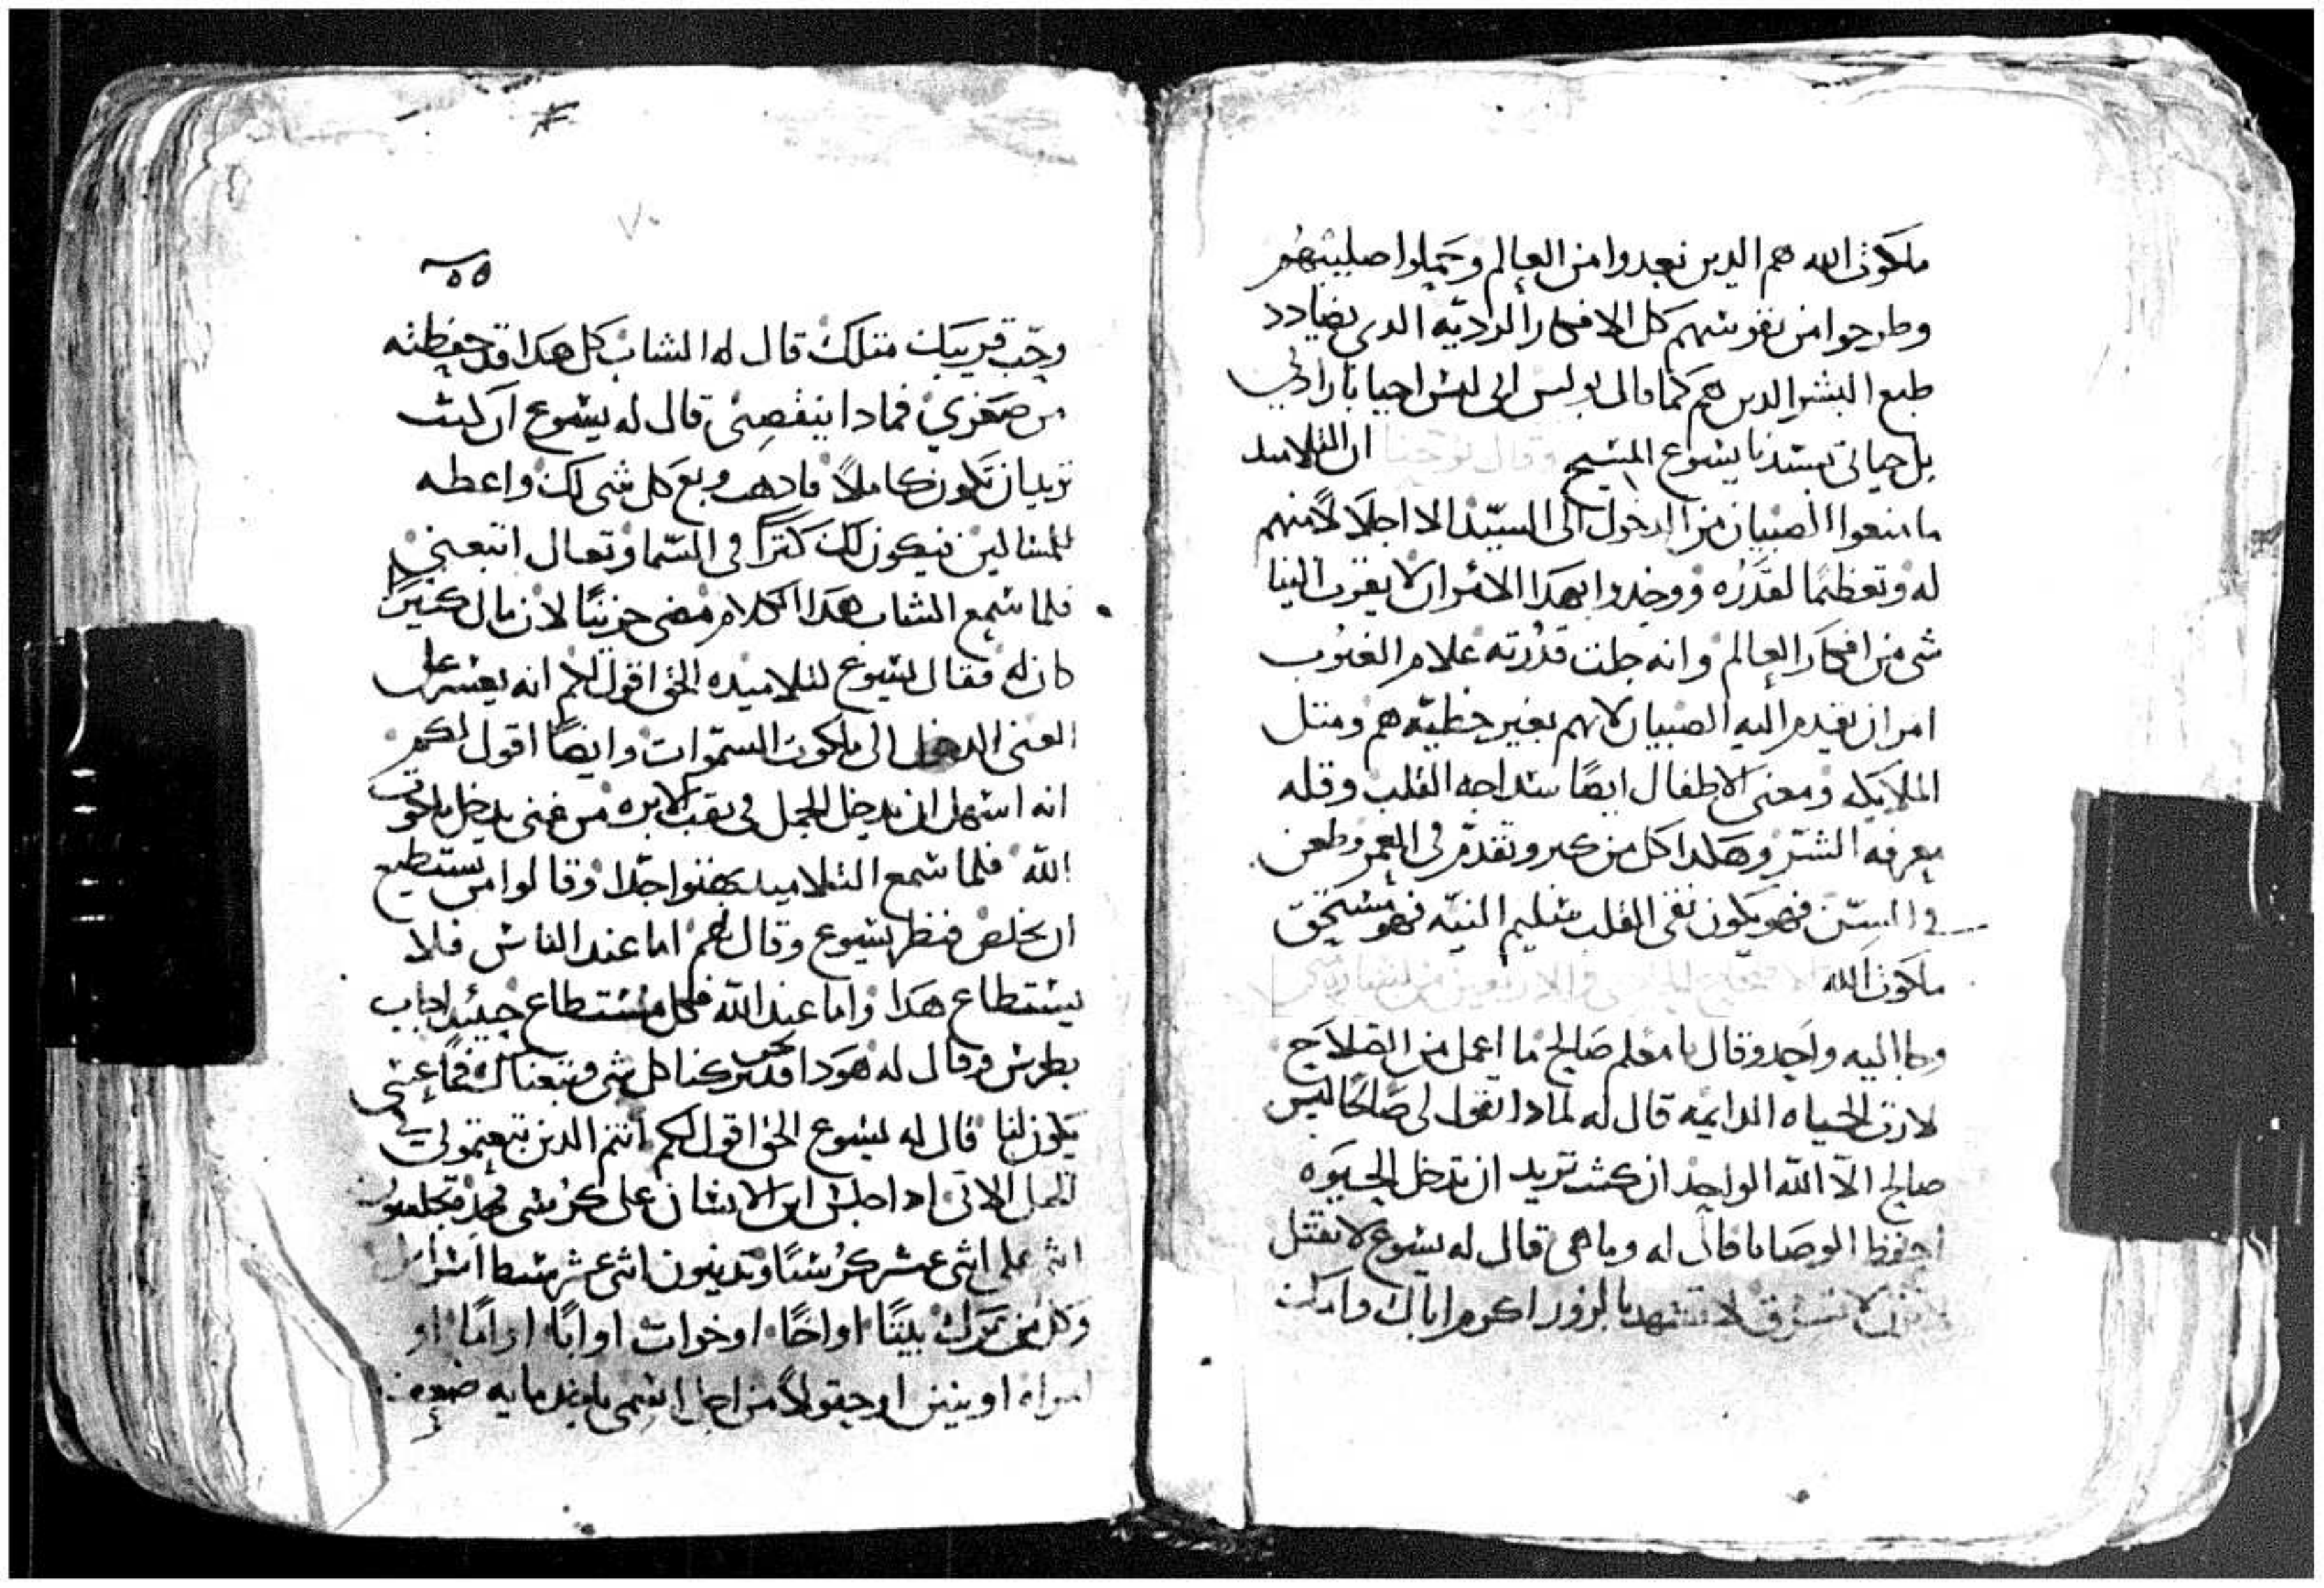 ملكوت الله هم الدين بعدوا من العالم وحملوا صليبهم
وطرحوا من نفوسهم كل الافكار الرديه الدى يضادد
طبع البشر الدين هم كما قال بولس انى لست احيا بارادتي
بل حياتى بسيدنا يسوع المسيح وقال يوحنا ان التلاميد
ما منعوا الصبيان من الدخول الى السيد الا اجلالاً منهم
له وتعظيما لقدره ووجدوا بهدا الامر ان لا يقرب الينا
شى من افكار العالم وانه جلت قدرته علام الغيوب
امر ان يقدم اليه الصبيان لانهم بغير خطيه هم ومثل
الملايكه ومعنى الاطفال ايضاً سداجة القلب وقله
معرفه الشر وهكدا كل من كبر وتقدم فى العمر وطعن
فى السن فهو يكون نقى القلب سليم النيه فهو مستحق
ملكوت الله
وجا اليه واحد وقال يا معلم صالح ما اعمل من الصلاح
لارث الحياه الدايمه قال له لمادا تقول لى صالحاً ليس
صالح الا الله الواحد ان كنت تريد ان تدخل الحيوه
احفظ الوصايا قال له وما هى قال له يسوع لا تقتل
لا تسرق لا تشهد بالزور اكرم اباك وامك
٥٥
٧٠
وحب قريبك متلك قال له الشاب كل هدا قد حفظته
من صغري فمادا ينقصنى قال له يسوع ان كنت
تريد ان تكون كاملاً فادهب وبع كل شى لك واعطه
للمساكين فيكون لك كنزاً فى السما وتعال اتبعنى
فلما سمع الشاب هدا الكلام مضى حزيناً لان مال كثير
كان له فقال يسوع لتلاميده الحق اقول لكم انه يعسر على
الغنى الدخول الى ملكوت السموات وايضاً اقول لكم
انه اسهل ان يدخل الجمل فى ثقب الابره من غنى يدخل ملكوت
الله فلما سمع التلاميد بهتوا جداً وقالوا من يستطيع
ان يخلص فنظر يسوع وقال لهم اما عند الناس فلا
يستطاع هدا واما عند الله فكل مستطاع حينيد اجاب
بطرس وقال له هودا نحن قد تركنا كل شى وتبعناك فما عسى
يكون لنا قال له يسوع الحق اقول لكم انتم الدين تبعتمونى
الاتى ادا جلس ابن الانسان على كرسى مجده تجلسون
انتم على اثنى عشر كرسياً وتدينون اثنى عشر سبط اسراييل
وكل من ترك بيتاً او اخاً او خوات او اباً او اماً او
امراه او بنين او حقولاً من اجل اسمى ياخد مايه ضعف